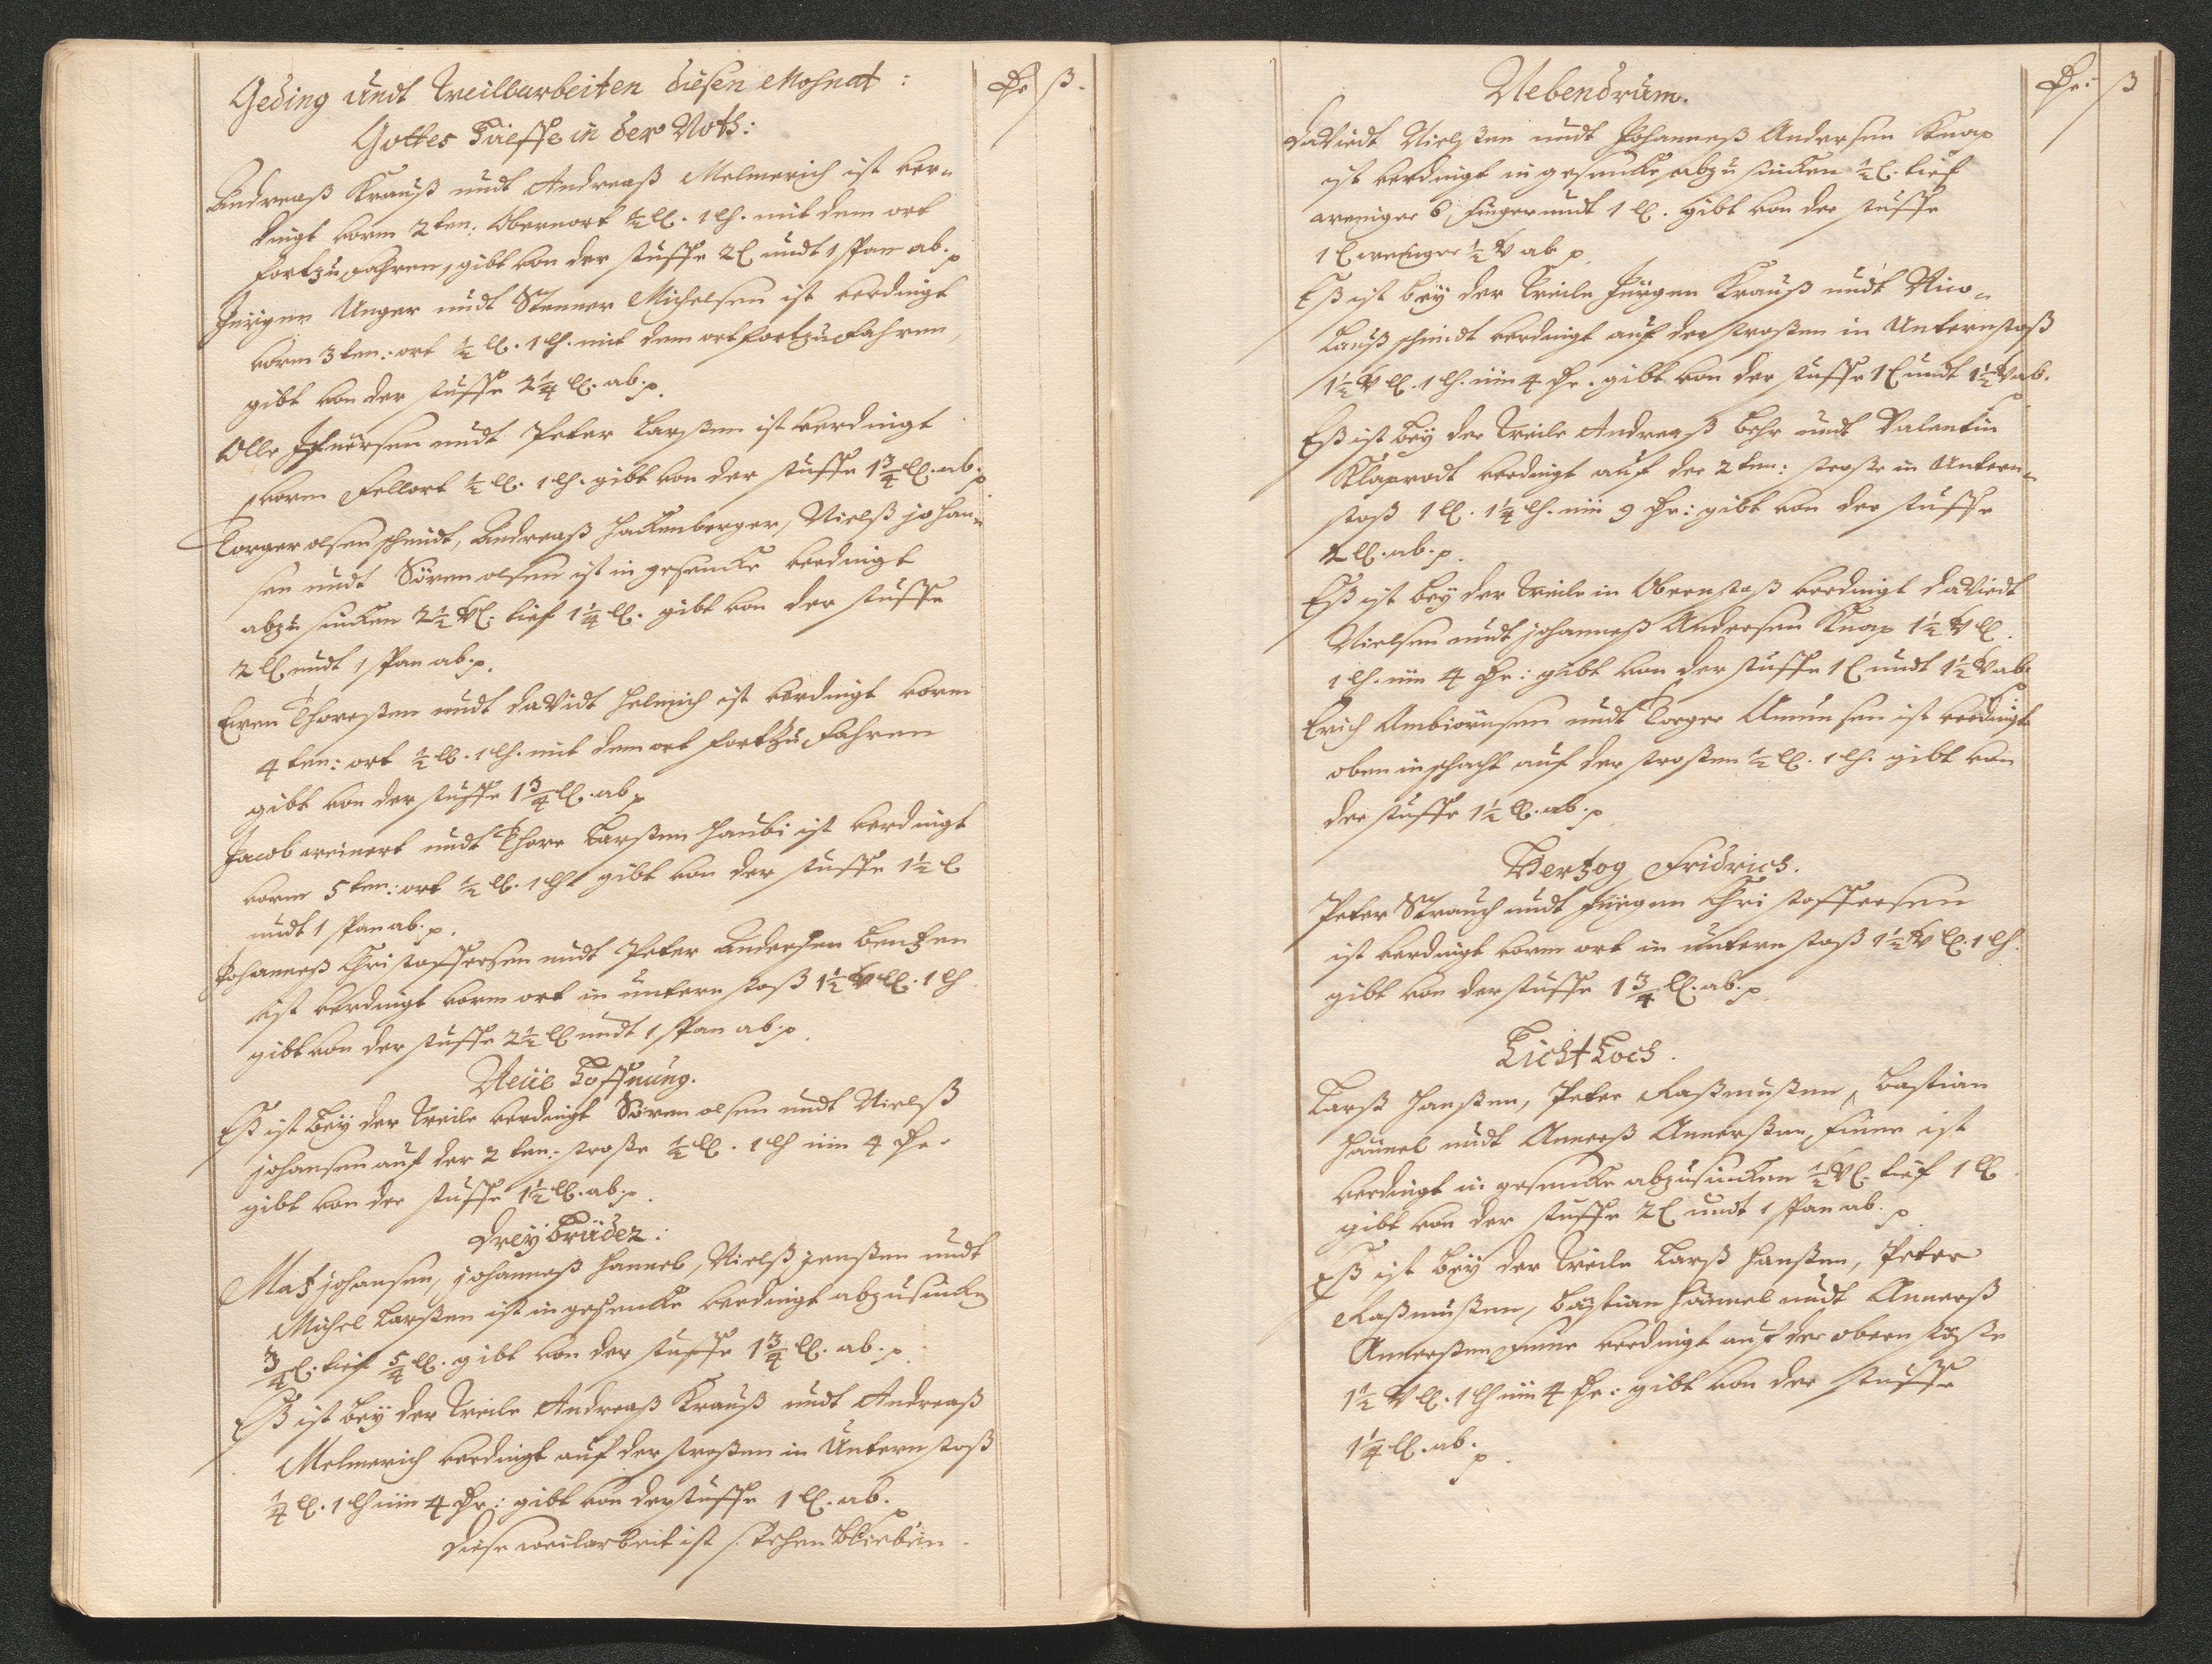 Geding undt Weillarbeiten diesen Mohnat:
Rr ß.
Gottes Hülffe in der Noth:
Andreaß Krauß undt Andreaß Melmerich ist ver-
dingt vorm 2ten: Obernort ½ ll. 1 lh. mit dem ort
fortzufahren, gibt von der stuffe 2 l undt 1 span ab. p
Jürgen Unger undt Stenner Michelsen ist verdingt
vorm 3ten: ort ½ ll. 1 lh. mit dem ort fortzufahren,
gibt von der stuffe 2¼ ll. ab. p.
Olle undt Peter Larßen ist verdingt
vorm Fellort ½ ll. 1 lh. gibt von der stuffe 1¾ ll. ab. p.
Torger olsen schmidt, Andreaß Hackenberger, Nielß johan-
sen undt Sören olsen ist in gesencke verdingt
abzusincken 2½ l. tief 1¼ ll. gibt von der stuffe
2 ll undt 1 span ab. p.
Even Thoreßen undt david Helmich ist verdingt vorm
4ten: ort ½ ll. 1 lh. mit dem ort fortzufahren
gibt von der stuffe 1¾ ll. ab p
Jacob weinert undt Thore Larßen Haubi ist verdingt
vorm 5ten: ort ½ ll. 1 lh gibt von der stuffe 1½ l
undt 1 span ab. p.
Johanneß Christoffersen undt Peter Andersen Bentzen
ist verdingt vorm ort in untern stoß 1½ V ll. 1 lh
gibt von der stuffe 2½ ll undt 1 span ab. p.
Neüe Hoffnung.
Eß ist bey der Weile verdingt Sören olsen undt Nielß
johansen auf der 2ten: stroße ½ ll. 1 lh üm 4 Rr
gibt von der stuffe 1½ ll. ab. p.
Drey Brüder:
Matz johansen, johanneß Hannel, Nielß jenßen undt
Michel Larßen ist in gesencke verdingt abzusincken
¾ l. tief 5/4 ll. gibt von der stuffe 1¾ ll. ab. p.
Eß ist bey der Weile Andreaß Krauß undt Andreaß
Melmerich verdingt auf der stroßen in Untern stoß
¼ ll. 1 lh üm 4 Rr: gibt von der stuffe 1 ll. ab. p
diese weilarbeit ist stehen blieben.
Nebendrum.
Rr: ß
daviedt Nielßen undt Johanneß Andersen Knap
ist verdingt in gesencke abzusincken ½ l. tief
weniger 6 finger undt 1 ll. gibt von der stuffe
1 l weniger ½ V ab p.
Eß ist bey der Weile Jürgen Krauß undt Nico-
lauß schmidt verdingt auf der stroßen in Untern stoß
1½ V ll. 1 lh. üm 4 Rr. gibt von der stuffe 1 l undt 1½ V ab. p
Eß ist bey der Weile Andreaß Behr undt Valentin
Klaprodt verdingt auf der 2ten: stroße in Untern-
stoß 1 ll. 1¼ lh. üm 9 Rr: gibt von der stuffe
2 ll. ab. p.
Eß ist bey der Weile in Obern stoß verdingt daviedt
Nielsen undt johanneß Andersen Knap 1½ V ll.
1 lh. üm 4 Rr: gibt von der stuffe 1 l undt 1½ V ab. p
Erich Ambiörnsen undt Torger Amunsen ist verdingt
oben in schacht auf der stroßen ½ ll. 1 lh. gibt von
der stuffe 1½ ll. ab. p
Hertzog Fridrich.
Peter Strauch undt Jürgen Christoffersen
ist verdingt vorm ort in untern stoß 1½ V ll. 1 lh.
gibt von der stuffe 1¾ ll. ab. p
Lichtloch.
Larß Hanßen, Peter Raßmußen, Bastian
Häünel undt Annerß Annerßen Finne ist
verdingt in gesencke abzusincken ½ V l. tief 1 ll
gibt von der stuffe 2 l undt 1 span ab. p.
Eß ist bey der Weile Larß Hanßen, Peter
Raßmußen, Bastian Häünel undt Annerß
Annerßen Finne verdingt auf der obern stroße
1½ V ll. 1 lh üm 4 Rr: gibt von der stuffe
1¼ ll. ab. p.